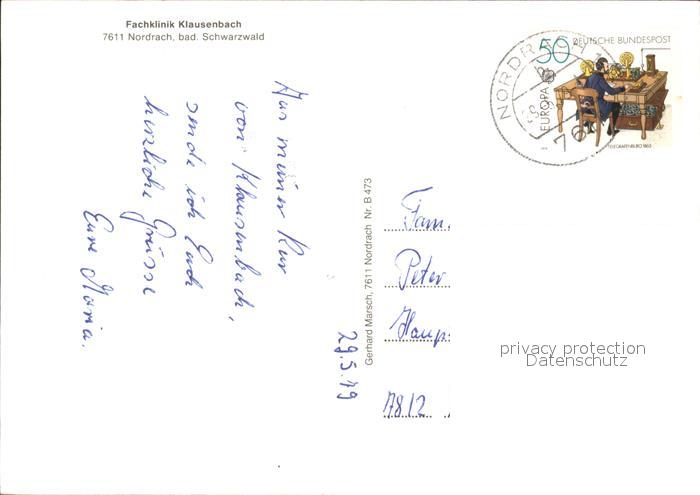 Fachklinik Klausenbach
7611 Nordrach, bad. Schwarzwald
Aus meiner Kur
von Klausenbach,
sende ich Euch
herzliche Grüsse
Eure Maria.
29.5.79
Gerhard Marsch, 7611 Nordrach Nr. B 473
NORDRACH
50 DEUTSCHE BUNDESPOST
EUROPA
TELEGRAFENBÜRO 1863
Fam.
Peter
Haup
7812
privacy protection
Datenschutz